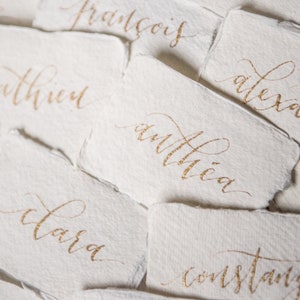 françois
uthieu
alexa
anthéa
clara
constan